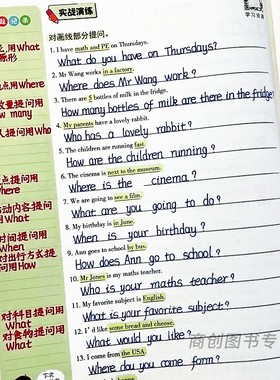 实战演练
学习资源
对画线部分提问。
1. I have math and PE on Thursdays.
What do you have on Thursdays?
2. Mr Wang works in a factory.
Where does Mr Wang work?
3. There are 5 bottles of milk in the fridge.
How many bottles of milk are there in the fridge?
4. My parents have a lovely rabbit.
Who has a lovely rabbit?
5. The children are running fast.
How are the children running?
6. The cinema is next to the museum.
Where is the cinema?
7. We are going to see a film.
What are you going to do?
8. My birthday is in June.
When is your birthday?
9. Ann goes to school by bus.
How does Ann go to school?
10. Mr Jones is my maths teacher.
Who is your maths teacher?
11. My favorite subject is English.
What is your favorite subject?
12. I'd like some bread and cheese.
What would you like?
13. I come from the USA.
Where do you come form?
用What
用Where
数量提问用
How many
人提问用Who
点提问用
Where
动内容提问用
What
时间提问用
When
对出行方式提
问用How
对科目提问用
What
对食物提问用
What
商创图书专